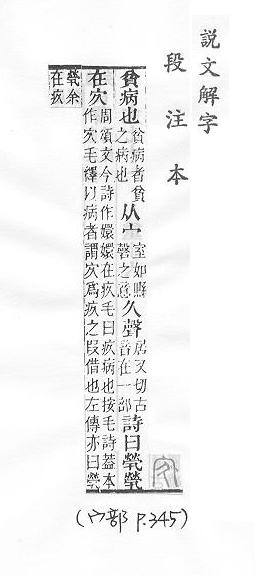 說文解字
段注本
貧病也貧病者貧之病也从宀室如縣罄之意久聲居又切古音在一部詩曰煢煢
在㝌周頌文今詩作嬛嬛在疚毛曰疚病也按毛詩葢本作㝌毛釋以病者謂㝌爲疚之叚借也左傳亦曰煢
煢余在疚
(宀部 P.345)